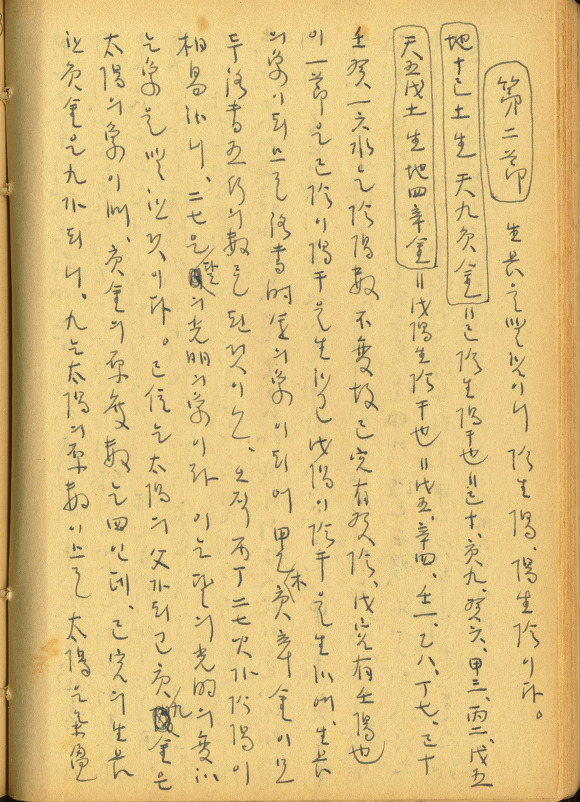 第二節 生長을 變說이니 陰生陽、陽生陰이라。
地十己土生天九庚金 = 己陰生陽干也 = 己十、庚九、癸六、甲三、丙二、戊五
天五戊土生地四辛金 = 戊陽生陰干也 = 戊五、辛四、壬一、乙八、丁七、己十
壬癸一六水는 陰陽數不變故 己宮有癸陰、戊宮有壬陽也
이 一節은 己陰이 陽干을 生하고 戊陽이 陰干을 生하며、生長
의 象이 되므로 洛書 의 象이 되어 甲乙木 庚辛金이모
두 洛書 五行의 數로 된 것이오、오직 丙丁二七火가 陰陽이
相易하니、二七은 의 光明의 象이라 이는 달의 光明의 變하
는 象을 것이라。己位는 太陽의 父가 되고 庚九金은
太陽의 象이며、庚金의 原 數는 四인데、己宮의 生長
庚金은 九가 되니。九는 太陽의 原數이므로 太陽는